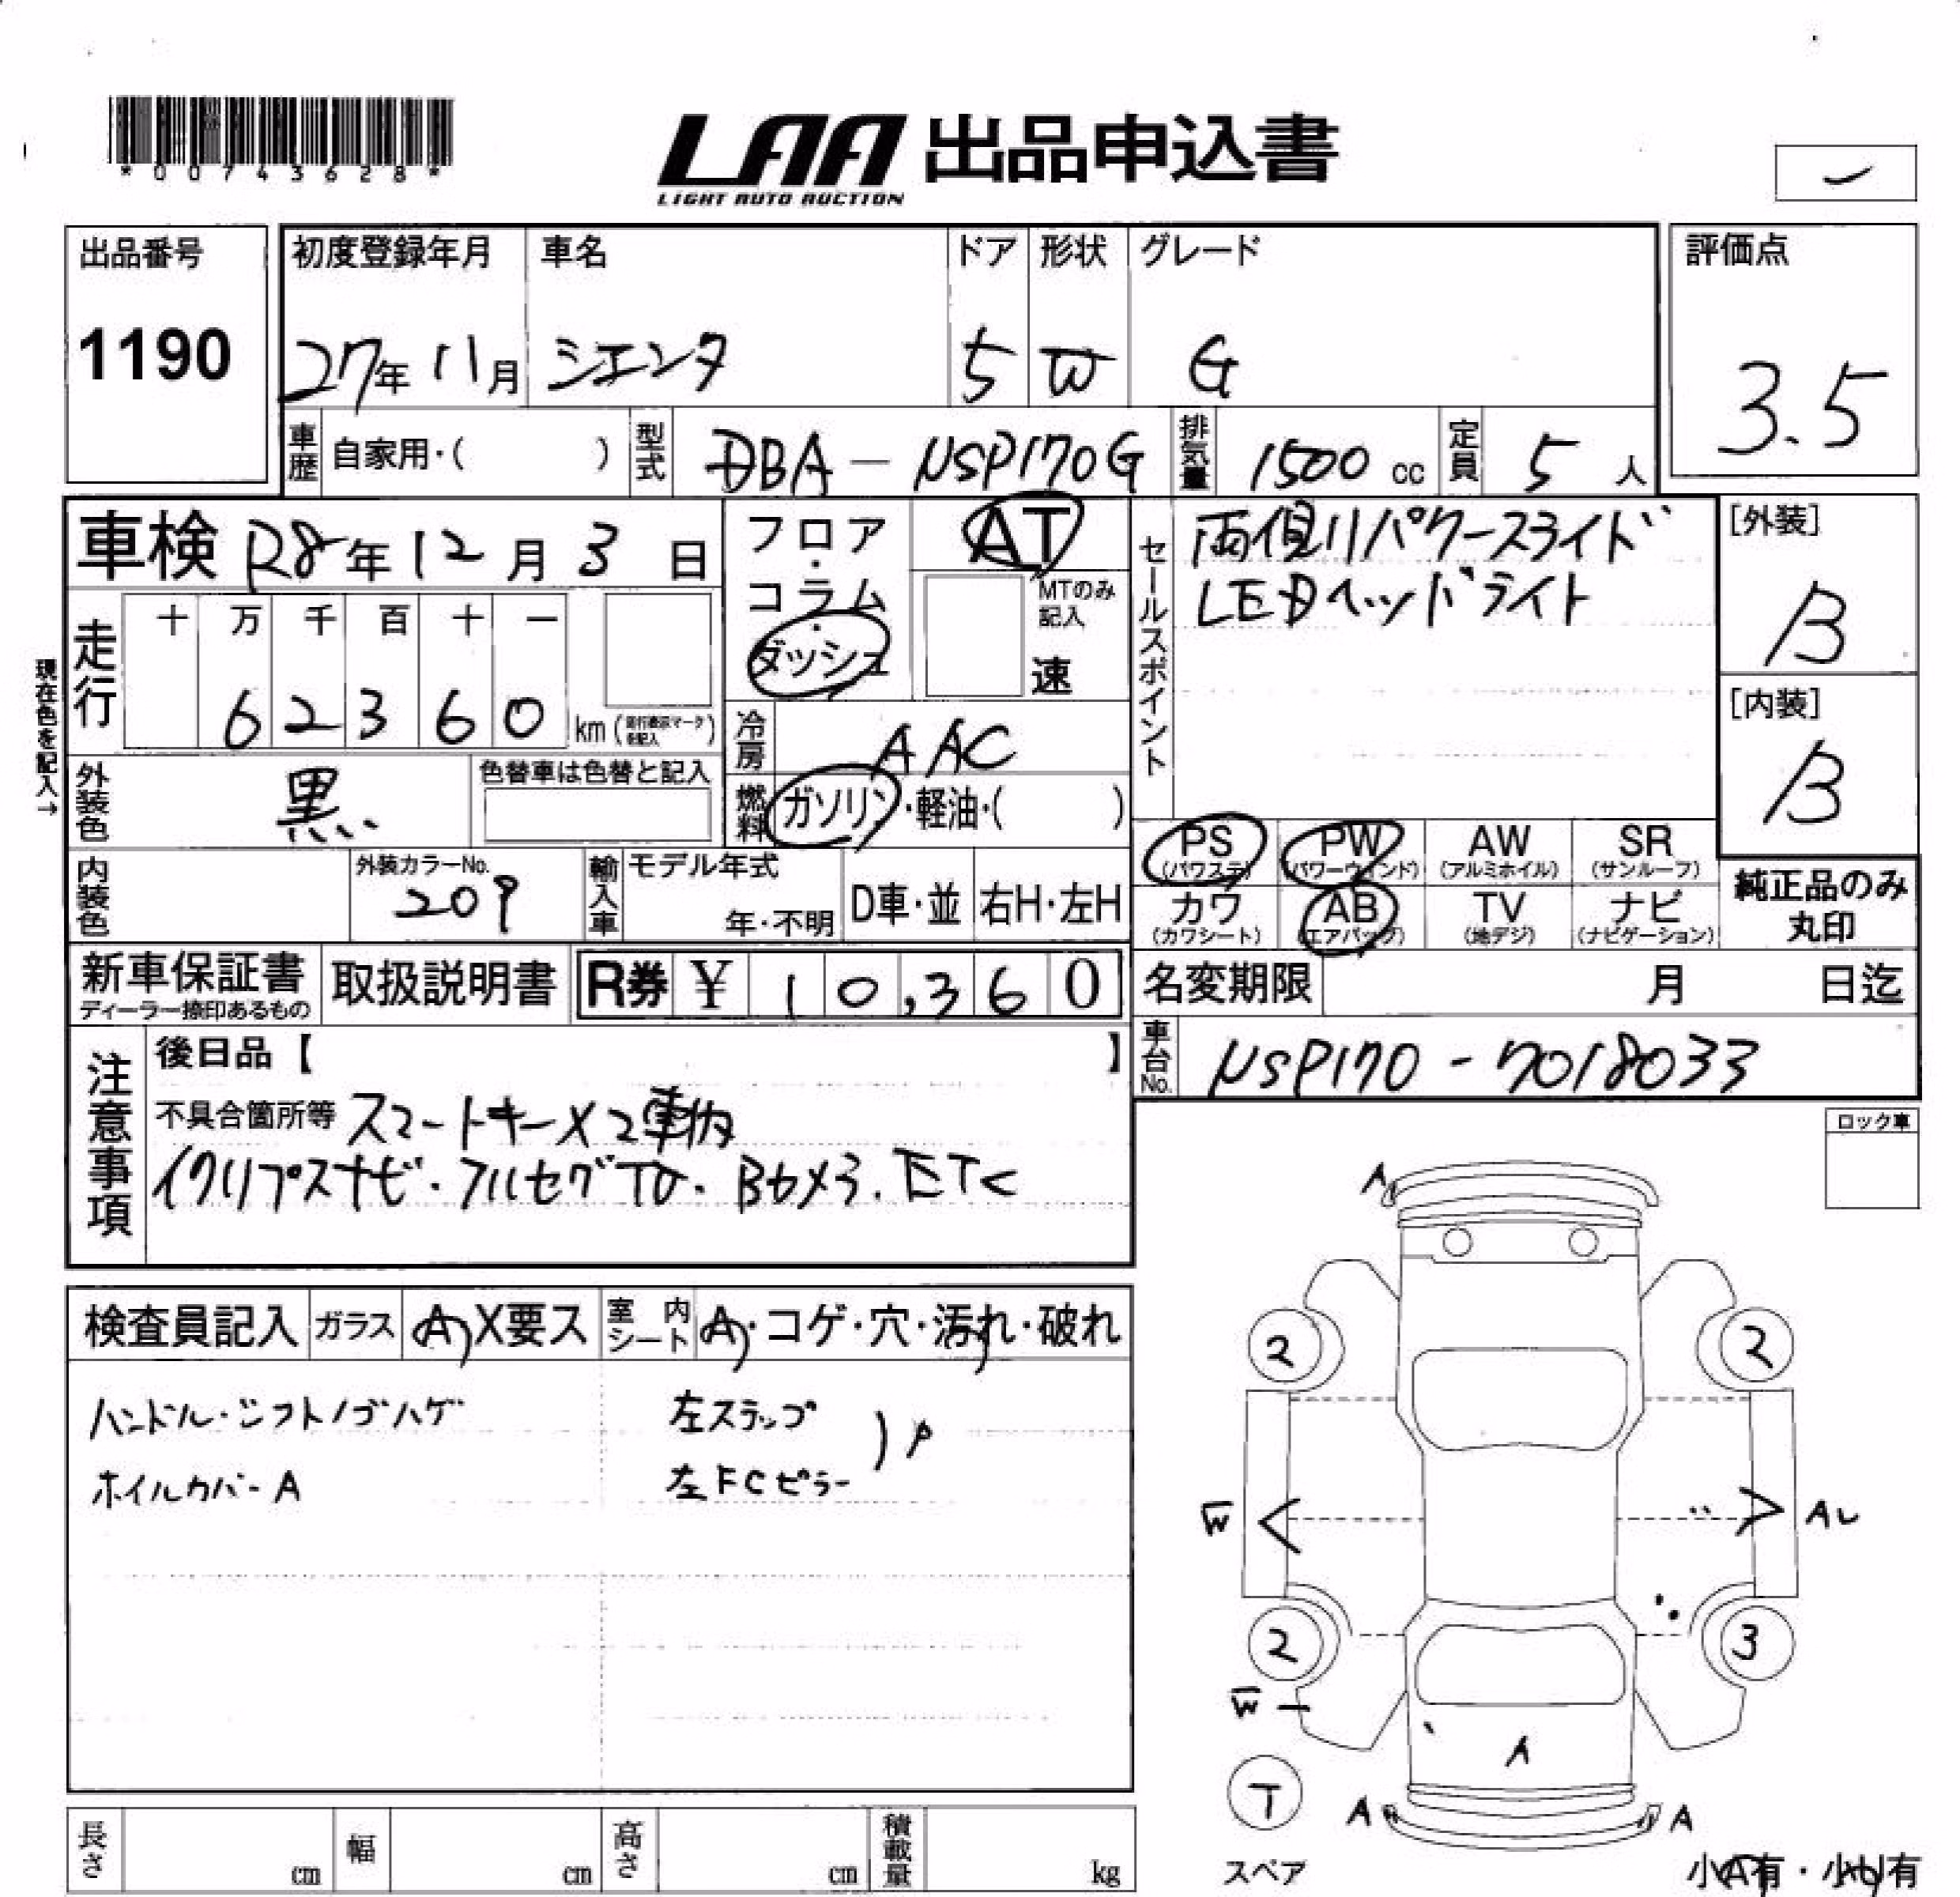 *00743628*
LAA 出品申込書
LIGHT AUTO AUCTION
出品番号
1190
初度登録年月
27年11月
車名
シエンタ
ドア
5
形状
W
グレード
G
評価点
3.5
車歴 自家用・( )
型式 DBA-NSP170G
排気量 1500 cc
定員 5 人
車検 R8年12月3日
走行
十 万 千 百 十 一
6 2 3 6 0 km
現在色を記入→
外装色 黒
色替車は色替と記入
内装色
外装カラーNo.
209
輸入車 モデル年式
年・不明
D車・並
右H・左H
フロア・コラム・ダッシュ
AT
MTのみ記入
速
冷房 AAC
燃料 ガソリン・軽油・( )
セールスポイント
両側パワースライド
LEDヘッドライト
[外装]
B
[内装]
B
PS (パワステ)
PW (パワーウィンド)
AW (アルミホイル)
SR (サンルーフ)
カワ (カワシート)
AB (エアバッグ)
TV (地デジ)
ナビ (ナビゲーション)
純正品のみ丸印
新車保証書
ディーラー捺印あるもの
取扱説明書
R券 ¥ 10,360
名変期限 月 日迄
車台No. NSP170-7018033
注意事項
後日品【 】
不具合箇所等 スマートキー×2車内
イクリプスナビ・フルセグTV・Bカメラ.ETC
ロック車
検査員記入
ガラス A X要ス
室内シート A・コゲ・穴・汚れ・破れ
ハンドル・シフトノブハゲ
ホイルカバーA
左ステップ
左FCピラー
)P
A
2
2
W
A
2
3
W
A
T
スペア
A
A
小A有・小U有
長さ cm
幅 cm
高さ cm
積載量 kg